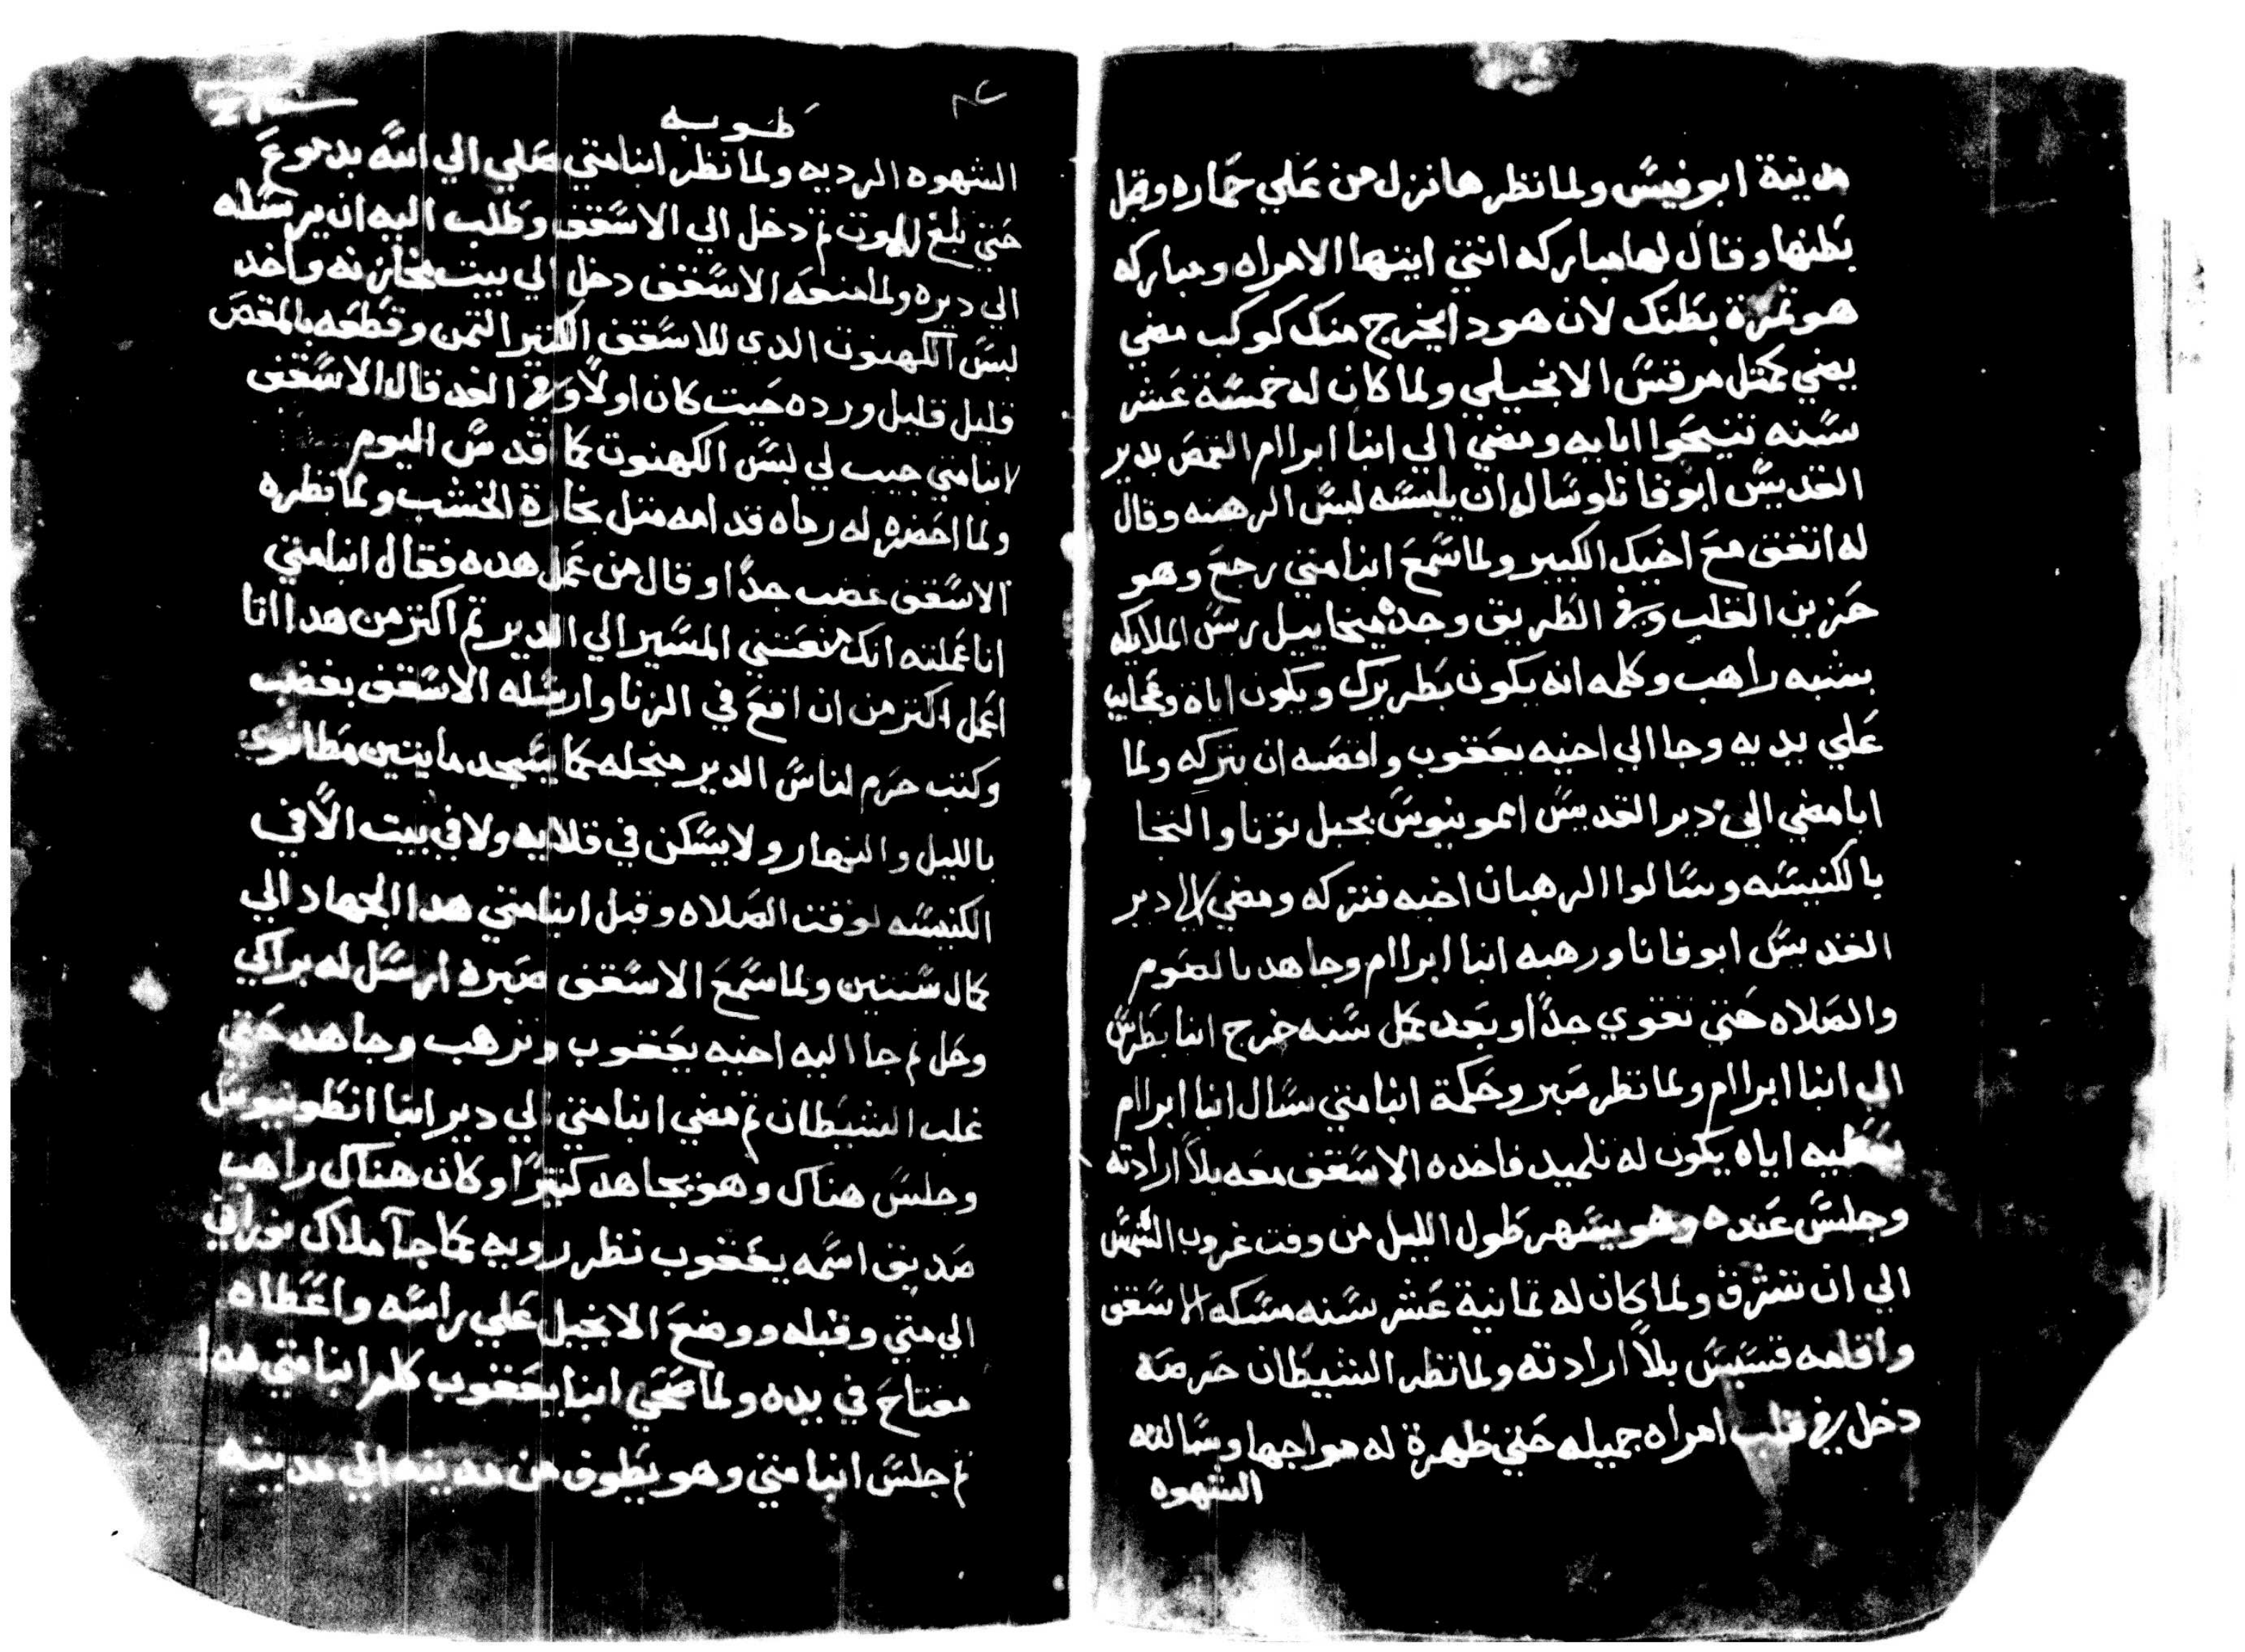 مدينة ابو فيس ولما نظرها نزل من علي حماره وقبل
بطنها وقال لها مباركه انتي ايتها الامراه ومباركه
هو تمرة بطنك لان هودا يخرج منك كوكب مضي
يضي كمتل مرقس الانجيلي ولما كان له خمسة عشر
سنه تنيحوا ابايه ومضي الي انبا ابراام القمص بدير
القديس ابو فانا وساله ان يلبسه لبس الرهبنه وقال
له اتفق مع اخيك الكبير ولما سمع انبا متي رجع وهو
حزين القلب وفي الطريق وجده ميخاييل ريس الملايكه
بشبه راهب وكلمه انه يكون بطريرك ويكون اياة وعجايب
علي يديه وجا الي اخيه يعقوب وافضه ان يتركه ولما
ابا مضي الي دير القديس امونيوس بجبل تونا والتجا
بالكنيسه وسالوا الرهبان اخيه فتركه ومضي الي دير
القديس ابو فانا ورهبه انبا ابراام وجاهد بالصوم
والصلاه حتي تقوي جدا وبعد كمل سنه خرج انبا بطرس
الي انبا ابراام ولما نظر صبر وحكمة انبا متي سال انبا ابراام
يعطيه اياه يكون له تلميد فاخده الاسقف معه بلا ارادته
وجلس عنده وهو يسهر طول الليل من وقت غروب الشمس
الي ان تشرق ولما كان له تمانية عشر سنه مسكه الاسقف
واقامه قسيس بلا ارادته ولما نظر الشيطان حرصه
دخل في قلب امراه جميله حتي ظهرة له مواجها وسالته
الشهوه
طوبه
الشهوه الرديه ولما نظر انبا متي صلي الي الله بدموع
حتي بلغ للموت تم دخل الي الاسقف وطلب اليه ان يرسله
الي ديره ولما منعه الاسقف دخل الي بيت مخازنه واخد
لبس الكهنوت الدي للاسقف الكتير التمن وقطعه بالمقص
قليل قليل ورده حيت كان اولا وفي الغد قال الاسقف
لانبا متي جيب لي لبس الكهنوت كما اقدس اليوم
ولما احضره له رماه قدامه متل نخارة الخشب ولما نظره
الاسقف غضب جدا وقال من عمل هده فقال انبا متي
انا عملته انك منعتني المسير الي الدير تم اكتر من هدا انا
اعمل اكتر من ان اقع في الزنا وارسله الاسقف بغضب
وكتب حرم لناس الدير منجله كما يسجد مايتين مطانوي
بالليل والنهار ولا يسكن في قلايه ولا في بيت الا في
الكنيسه لوقت الصلاه وقبل انبا متي هدا الجهاد الي
كمال سنتين ولما سمع الاسقف صبره ارسل له براكي
وحل تم جا اليه اخيه يعقوب وترهب وجاهد حتي
غلب الشيطان تم مضي انبا متي الي دير انبا انطونيوس
وجلس هناك وهو يجاهد كتيرا وكان هناك راهب
صديق اسمه يعقوب نظر رويه كما جا ملاك نوراني
الي متي وقبله ووضع الانجيل علي راسه واعطاه
مفتاح في يده ولما صحي انبا يعقوب كلم انبا متي هدا
تم جلس انبا متي وهو يطوف من مدينه الي مدينه